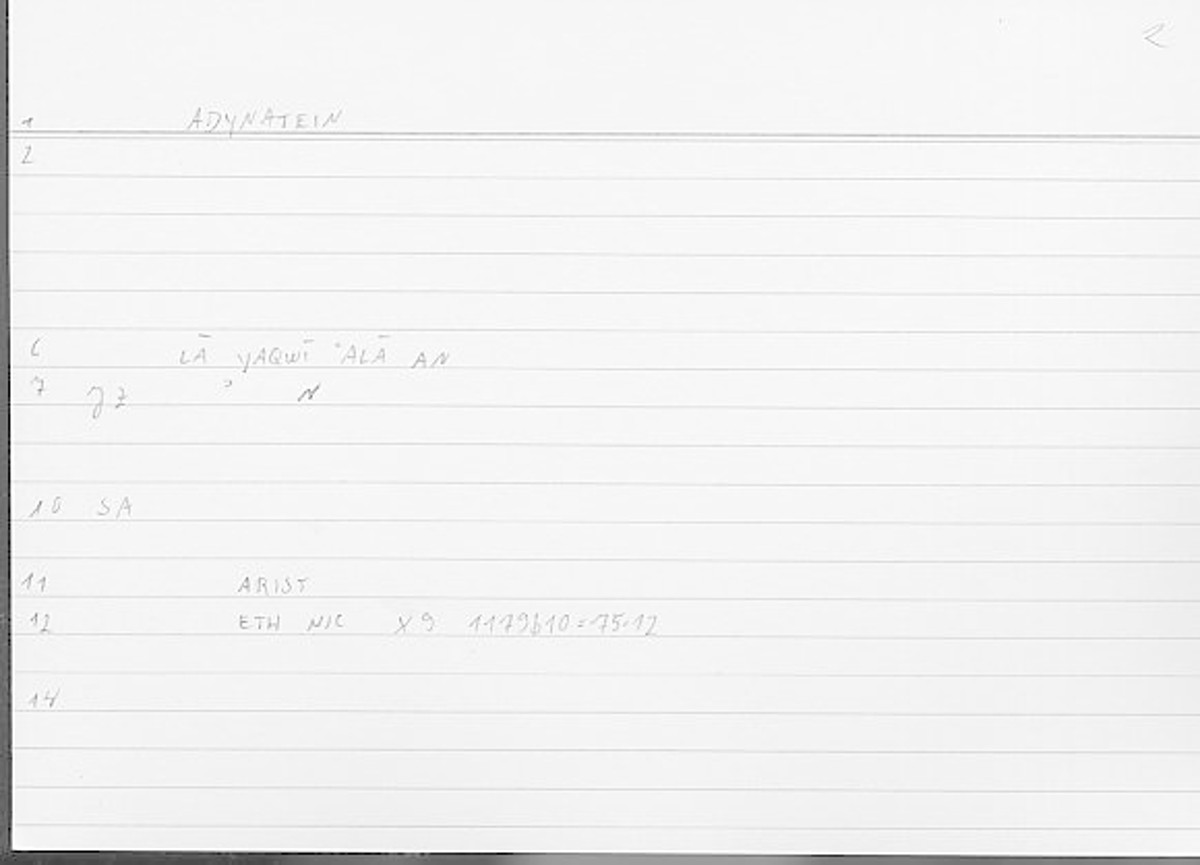 2
1 ADYNATEIN
2
6 LĀ YAQWĪ ʿALĀ AN
7 ʾ N
10 SA
11 ARIST
12 ETH NIC X 9 1179b10 = 75.12
14